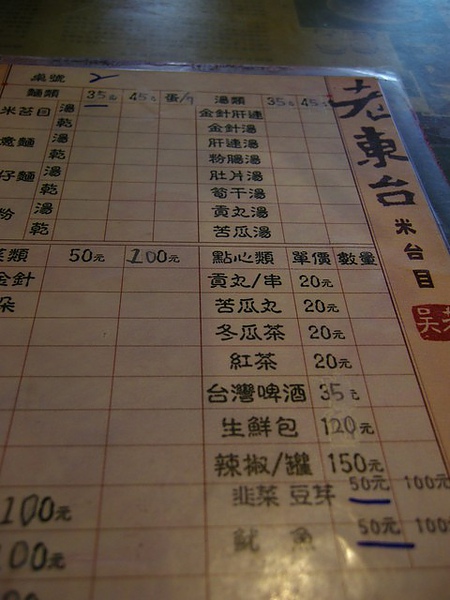 桌號 2
麵類 35元 45元 蛋/7 湯類 35元 45元
米苔目 湯 金針肝連
乾 金針湯
意麵 湯 肝連湯
乾 粉腸湯
仔麵 湯 肚片湯
乾 筍干湯
粉 湯 貢丸湯
乾 苦瓜湯
菜類 50元 100元 點心類 單價 數量
金針 貢丸/串 20元
朵 苦瓜丸 20元
冬瓜茶 20元
紅茶 20元
台灣啤酒 35元
生鮮包 120元
辣椒/罐 150元
韭菜 豆芽 50元 100元
100元 魷魚 50元 100
100元
老東台
米台目
吳